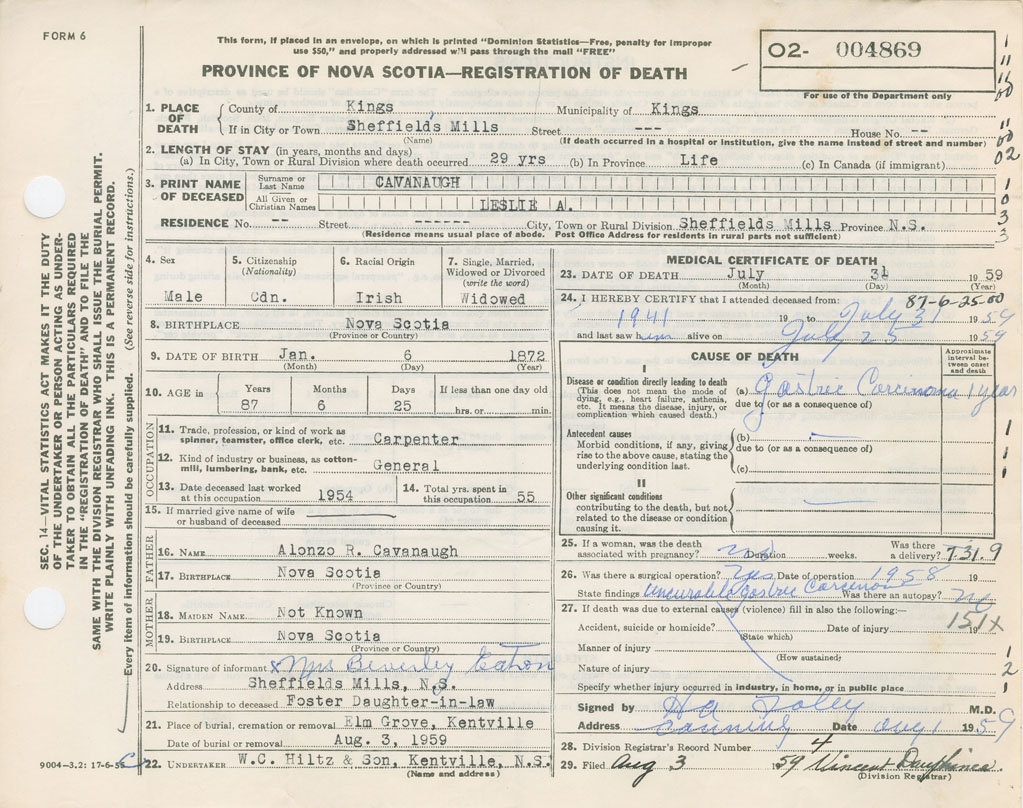 FORM 6
This form, if placed in an envelope, on which is printed "Dominion Statistics—Free, penalty for improper
use $50," and properly addressed will pass through the mail "FREE"
PROVINCE OF NOVA SCOTIA—REGISTRATION OF DEATH
02- 004869
For use of the Department only
1. PLACE OF DEATH
County of Kings Municipality of Kings
If in City or Town Sheffields Mills Street --- House No. --
(Name) (If death occurred in a hospital or institution, give the name instead of street and number)
2. LENGTH OF STAY (in years, months and days)
(a) In City, Town or Rural Division where death occurred 29 yrs (b) In Province Life (c) In Canada (if immigrant)
3. PRINT NAME OF DECEASED
Surname or Last Name CAVANAUGH
All Given or Christian Names LESLIE A.
RESIDENCE No. -- Street ------ City, Town or Rural Division Sheffields Mills Province N.S.
(Residence means usual place of abode. Post Office Address for residents in rural parts not sufficient)
4. Sex Male
5. Citizenship (Nationality) Cdn.
6. Racial Origin Irish
7. Single, Married, Widowed or Divorced (write the word) Widowed
8. BIRTHPLACE Nova Scotia
(Province or Country)
9. DATE OF BIRTH Jan. 6 1872
(Month) (Day) (Year)
10. AGE in Years 87 Months 6 Days 25 If less than one day old hrs. or min.
OCCUPATION
11. Trade, profession, or kind of work as
spinner, teamster, office clerk, etc. Carpenter
12. Kind of industry or business, as cotton-
mill, lumbering, bank, etc. General
13. Date deceased last worked
at this occupation 1954
14. Total yrs. spent in
this occupation 55
15. If married give name of wife
or husband of deceased
FATHER
16. NAME Alonzo R. Cavanaugh
17. BIRTHPLACE Nova Scotia
(Province or Country)
MOTHER
18. MAIDEN NAME Not Known
19. BIRTHPLACE Nova Scotia
(Province or Country)
20. Signature of informant x Mrs Beverley Eaton
Address Sheffields Mills, N.S.
Relationship to deceased Foster Daughter-in-law
21. Place of burial, cremation or removal Elm Grove, Kentville
Date of burial or removal Aug. 3, 1959
22. UNDERTAKER W.C. Hiltz & Son, Kentville, N.S.
(Name and address)
MEDICAL CERTIFICATE OF DEATH
23. DATE OF DEATH July 31 1959
(Month) (Day) (Year)
24. I HEREBY CERTIFY that I attended deceased from: 87-6-25-00
1941 19 to July 31 1959
and last saw him alive on July 25 1959
CAUSE OF DEATH
Approximate interval between onset and death
I
Disease or condition directly leading to death
(This does not mean the mode of
dying, e.g., heart failure, asthenia,
etc. It means the disease, injury, or
complication which caused death.)
(a) Gastric Carcinoma 1 year
due to (or as a consequence of)
Antecedent causes
Morbid conditions, if any, giving
rise to the above cause, stating the
underlying condition last.
(b)
due to (or as a consequence of)
(c)
II
Other significant conditions
contributing to the death, but not
related to the disease or condition
causing it.
25. If a woman, was the death
associated with pregnancy? Duration weeks. Was there a delivery? 7.31.9
26. Was there a surgical operation? Yes Date of operation 1958 19
State findings incurable gastric Carcinoma Was there an autopsy? no
27. If death was due to external causes (violence) fill in also the following:—
151X
Accident, suicide or homicide? Date of injury 19
(State which)
Manner of injury
(How sustained)
Nature of injury
Specify whether injury occurred in industry, in home, or in public place
Signed by Foley M.D.
Address Canning Date Aug 1 1959
28. Division Registrar's Record Number 4
29. Filed Aug 3 1959 Vincent
(Division Registrar)
SEC. 14—VITAL STATISTICS ACT MAKES IT THE DUTY
OF THE UNDERTAKER OR PERSON ACTING AS UNDER-
TAKER TO OBTAIN ALL THE PARTICULARS REQUIRED
IN THE "REGISTRATION OF DEATH" AND TO FILE THE
SAME WITH THE DIVISION REGISTRAR WHO SHALL ISSUE THE BURIAL PERMIT.
WRITE PLAINLY WITH UNFADING INK. THIS IS A PERMANENT RECORD.
Every item of information should be carefully supplied. (See reverse side for instructions.)